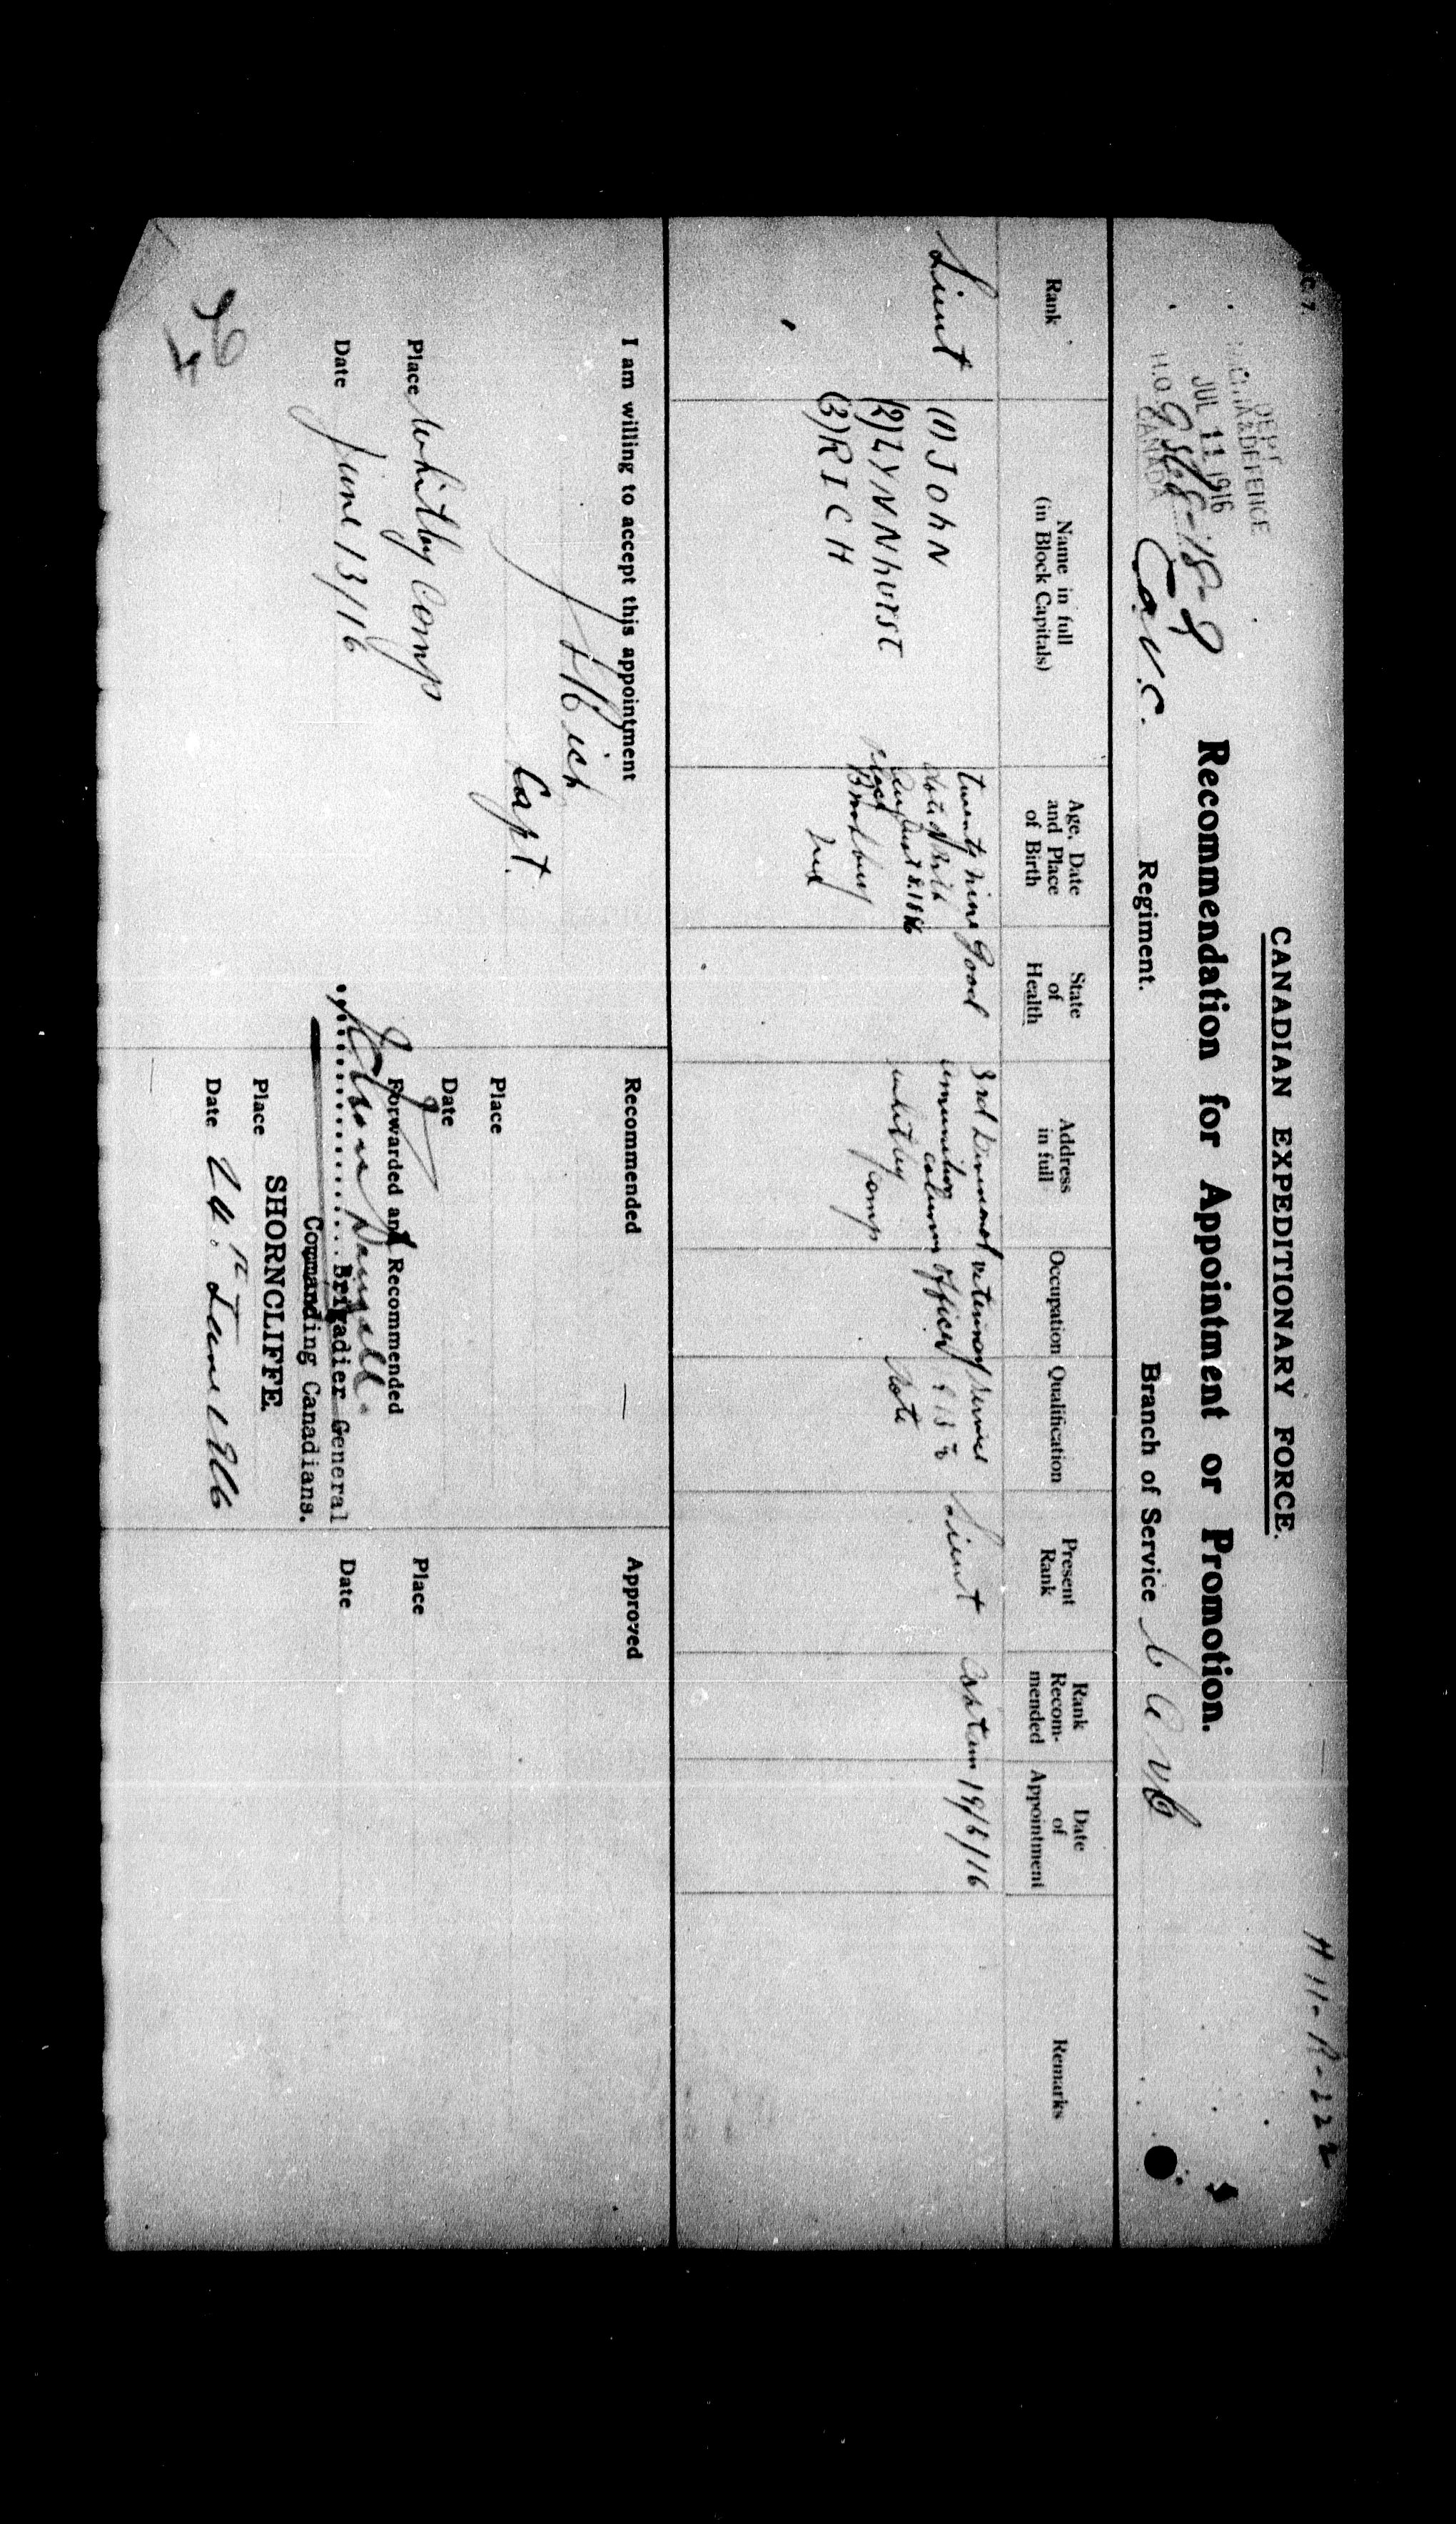 C. 7.
H 11-R-222
CANADIAN EXPEDITIONARY FORCE.
DEPT
MILITIA & DEFENCE
JUL 11 1916
H.Q.
CANADA
Recommendation for Appointment or Promotion.
C.A.V.C. Regiment. Branch of Service C A V C
Rank
Name in full
(in Block Capitals)
Age, Date
and Place
of Birth
State
of
Health
Address
in full
Occupation
Qualification
Present
Rank
Rank
Recom-
mended
Date
of
Appointment
Remarks
Lieut
(1) JOhN
(2) LYNNhurst
(3) RICH
twenty nine
date of Birth
August 2. 1886
place
Good
3rd Divisional
ammunition
column
whitby
Comp
veterinary
officer
Service
Note
Lieut
Captain
19/6/16
I am willing to accept this appointment
J L Rich
Capt.
Place Whitby Comp
Date June 13/16
96
Recommended
Place
Date
Forwarded and Recommended
Brigadier General
Commanding Canadians.
Place SHORNCLIFFE
Date June 1916
Approved
Place
Date